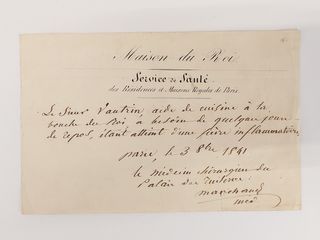 Maison du Roi
Service de Santé
des Résidences et Maisons Royales de Paris
Le Sieur Vautrin aide de cuisine à la
bouche du Roi à besoin de quelques jours
de repos, étant atteint d'une fièvre inflammatoire
paris, le 3 8bre 1841
le médecin chirurgien du
Palais des Tuileries